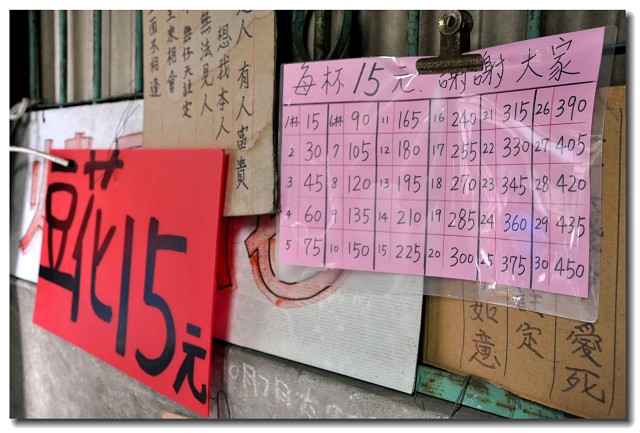 人 有人富貴
想我本人
無法見人
天註定
相會
面不相逢
每杯15元. 謝謝大家
1杯 15 6杯 90 11 165 16 240 21 315 26 390
2 30 7 105 12 180 17 255 22 330 27 405
3 45 8 120 13 195 18 270 23 345 28 420
4 60 9 135 14 210 19 285 24 360 29 435
5 75 10 150 15 225 20 300 25 375 30 450
豆花15元
愛死
定
如意